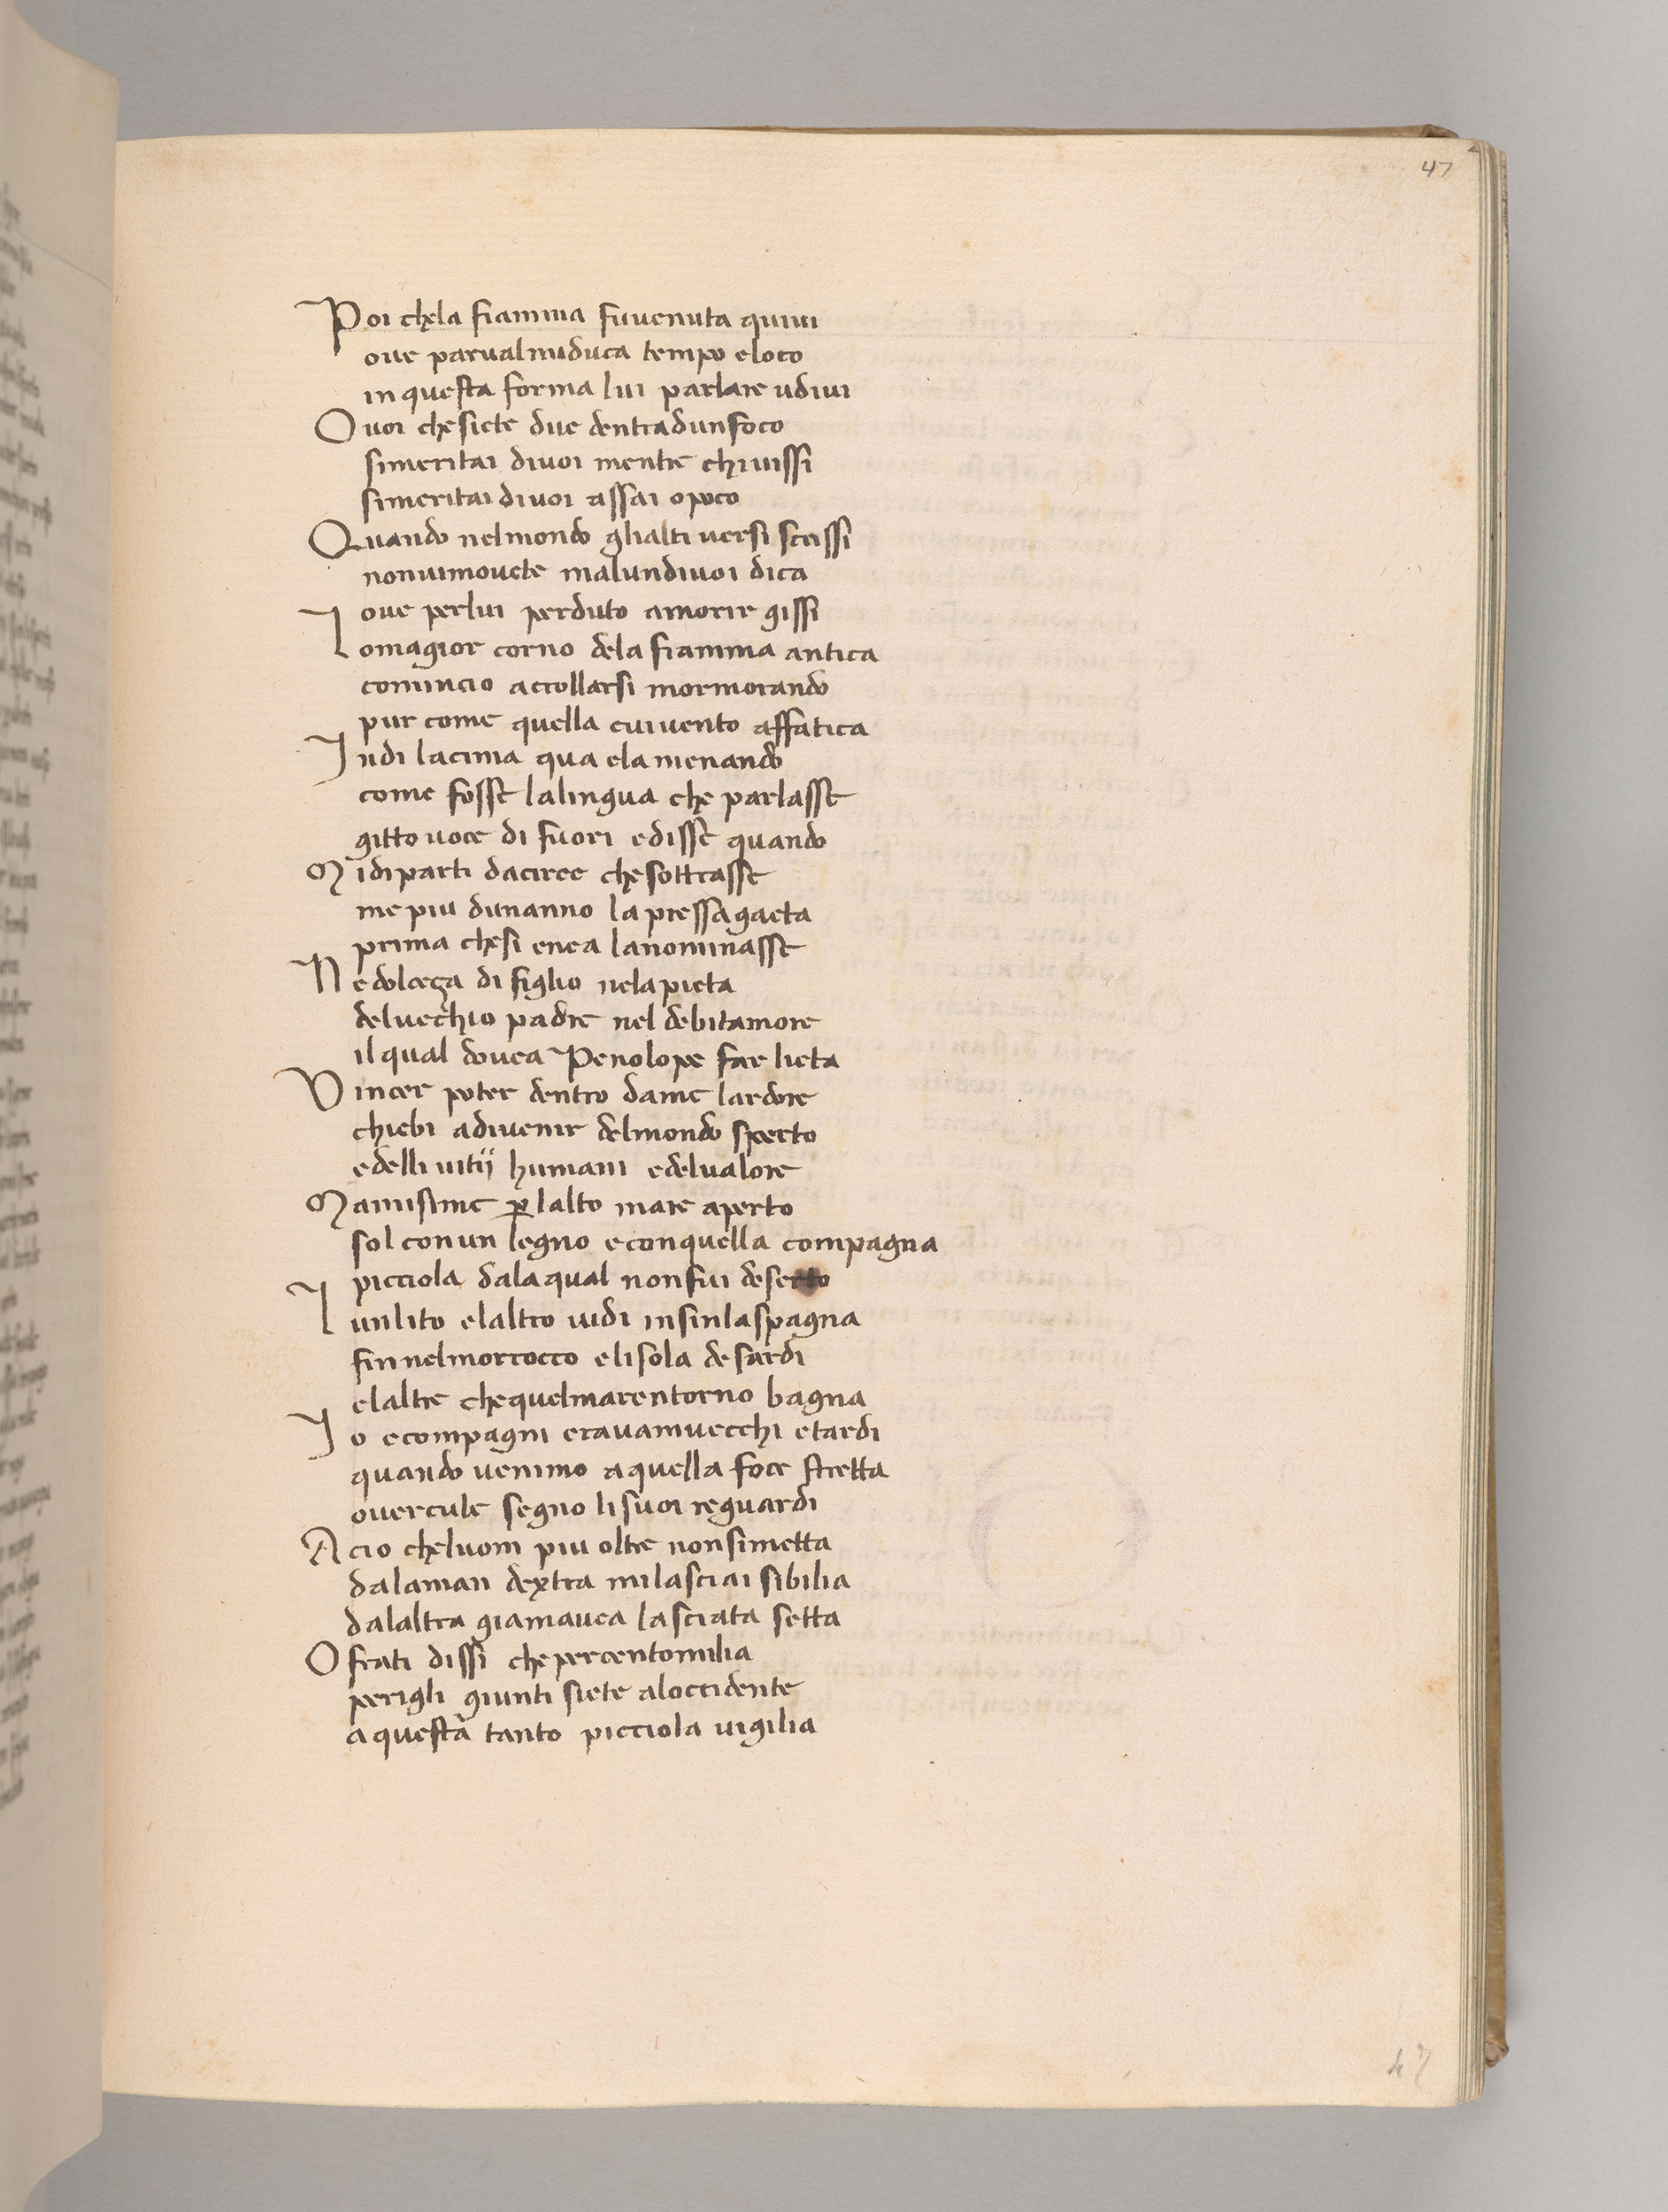 47
Poi chela fiamma fuuenuta quiui
oue parualmiduca tempo eloco
in questa forma lui parlare udiui
O uoi chesiete due dentradunfoco
simeritai diuoi mentre chiuissi
simeritai diuoi assai opoco
Quando nelmondo glialti uersi scrissi
nonuimouete malundiuoi dica
oue perlui perduto amorir gissi
Lomagior corno dela fiamma antica
comincio acrollarsi mormorando
pur come quella cuiuento affatica
Indi lacima qua ela menando
come fosse lalingua che parlasse
gitto uoce di fuori edisse quando
Midiparti dacirce chesottrasse
me piu dunanno la pressagaeta
prima chesi enea lanominasse
Ne dolceça di figlio nelapieta
deluecchio padre nel debitamore
ilqual douea Penolope far lieta
Vincer poter dentro dame lardore
chiebi adiuenir delmondo sperto
edelli uitij humani edelualore
Mamisime ꝑ lalto mare aperto
sol con un legno econquella compagna
picciola dalaqual nonfui deserto
Lunlito elaltro uidi insinlaspagna
fin nelmorrocco elisola desardi
elaltre chequelmarentorno bagna
Io ecompagni erauamuecchi etardi
quando uenimo aquella foce stretta
ouercule segno lisuoi reguardi
Acio cheluom piu oltre nonsimetta
dalaman dextra milasciai sibilia
dalaltra giamauea lasciata setta
O frati dissi chepercentomilia
perigli giunti siete aloccidente
aquesta tanto picciola uigilia
47